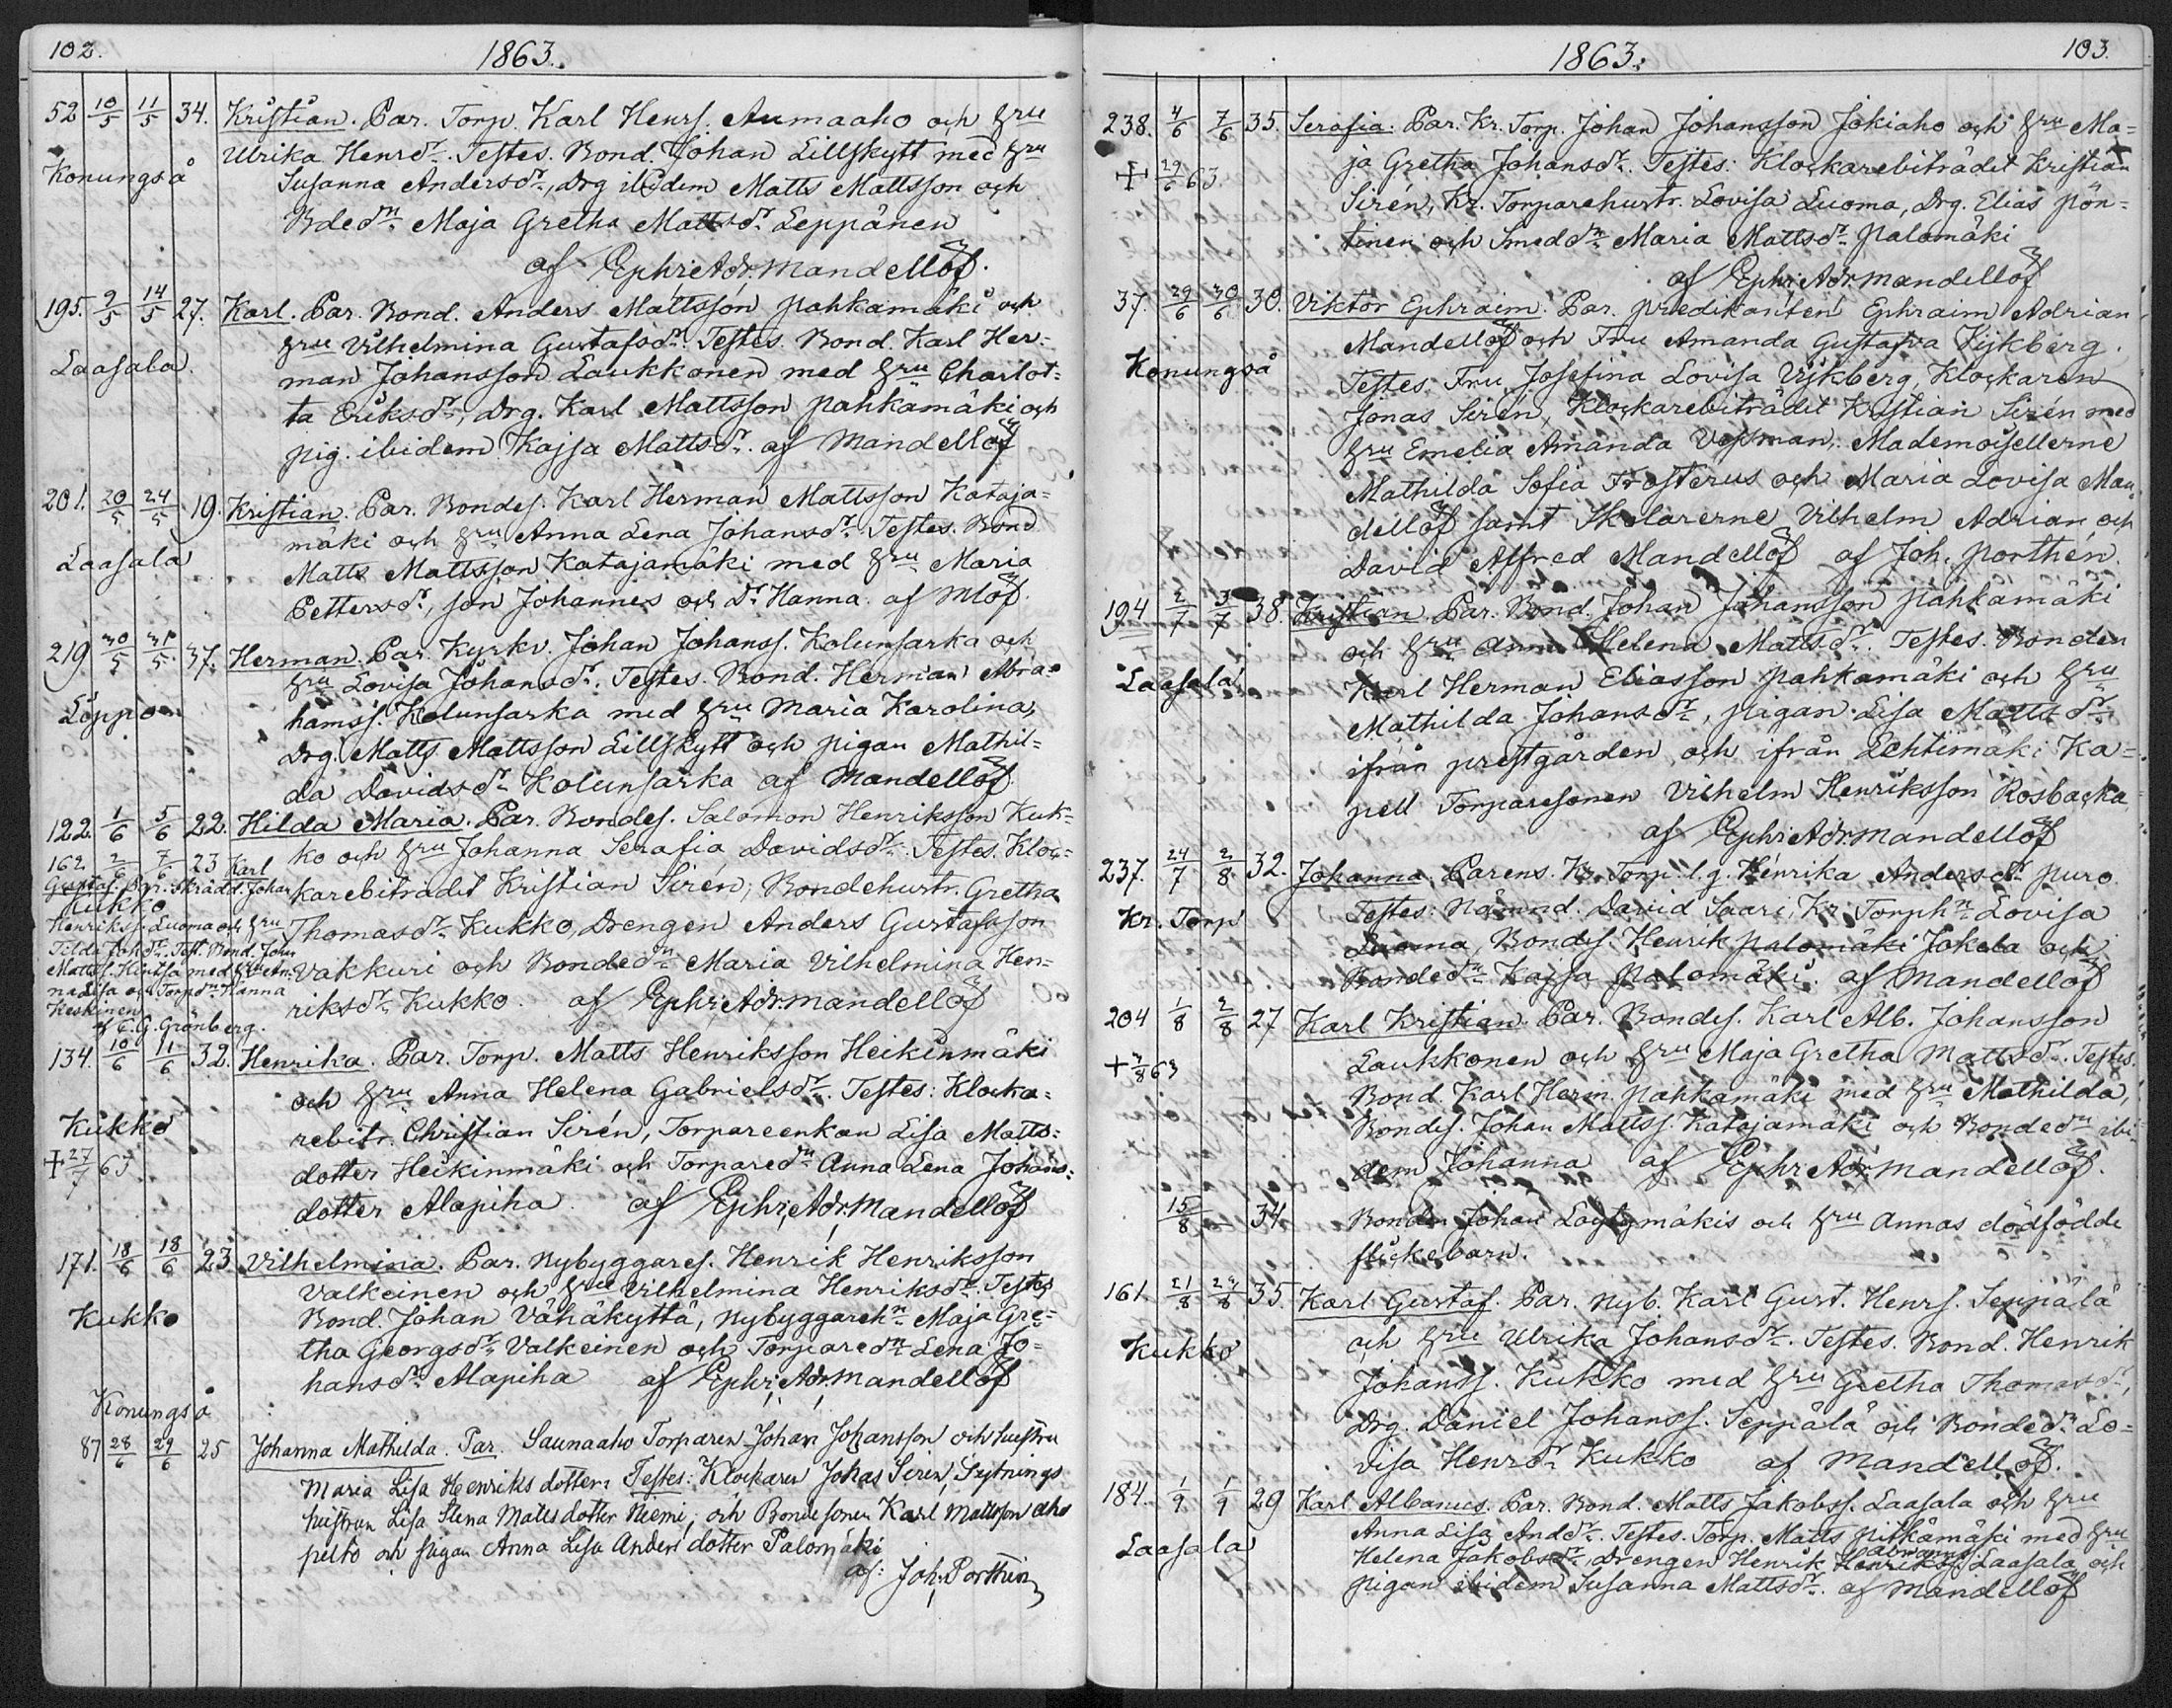 102.
1863.
52 10/5 11/5 34. Kristian. Par. Torp. Karl Henrs. Aumaaho och hru
Konungså
Ulrika Henrsdr. Testes. Bond. Johan Lillskytt med hru
Susanna Andersdr, Drg ibidem Matts Mattsson och
Bdedn Maja Gretha Mattsdr Leppänen
af Ephr. Adr. Mandellöf.
195. 9/5 14/5 27. Karl. Par. Bond. Anders Mattsson Pahkamäki och
Laasala.
hru Vilhelmina Gustafsdr. Testes. Bond. Karl Her=
man Johansson Laukkonen med hru Charlot=
ta Eriksdr, Drg. Karl Mattsson Pahkamäki och
pig. ibidem Kajsa Mattsdr. af Mandellöf
201. 20/5 24/5 19. Kristian. Par. Bondes. Karl Herman Mattsson Kataja=
Laasala
mäki och hru Anna Lena Johansdr. Testes. Bond
Matts Mattsson Katajamäki med hru Maria
Pettersdr, son Johannes och Dr Hanna. af Mlöf.
219. 30/5 31/5 37. Herman. Par. Kyrkv. Johan Johanss. Kolunsarka och
Löppo
hru Lovisa Johansdr. Testes. Bond. Herman Abra=
hamss. Kolunsarka med hru Maria Karolina,
Drg. Matts Mattsson Lillskytt och pigan Mathil=
da Davidsdr Kolunsarka af Mandellöf.
122. 1/6 5/6 22. Hilda Maria. Par. Bondes. Salomon Henriksson Kuk=
ko och hru Johanna Serafia Davidsdr. Testes. Kloc=
karebiträdet Kristian Sirén, Bondehustr. Gretha
Thomasdr Kukko, Drengen Anders Gustafsson
Vakkuri och Bondedn Maria Vilhelmina Hen=
riksdr Kukko. af Ephr. Adr. Mandellöf
162. 2/6 7/6 23 Karl
Gustaf. Par. Skrädd. Johan
Kukko
Henrikss. Luoma och hru
Tilda Johdr. Test. Bond. Johan
Mattss. Hirsa med hru An=
na Lisa och Torpdn Hanna
Keskinen
af C. G. Grönberg.
134. 10/6 11/6 32. Henrika. Par. Torp. Matts Henriksson Heikinmäki
Kukko
+ 27/7 63
och hru Anna Helena Gabrielsdr. Testes: Klocka=
rebitr. Christian Sirén, Torpareenkan Lisa Matts=
dotter Heikinmäki och Torparedn Anna Lena Johans=
dotter Alapiha af Ephr. Adr. Mandellöf
171. 18/6 18/6 23. Vilhelmina. Par. Nybyggares. Henrik Henriksson
Kukko
Valkeinen och hru Vilhelmina Henriksdr. Testes
Bond. Johan Vähäkyttä, Nybyggarehn Maja Gre=
tha Georgsdr Valkeinen och Torparedn Lena Jo=
hansdr Alapiha af Ephr. Adr. Mandellöf
Konungså
87 28/6 29/6 25 Johanna Mathilda. Par. Saunaaho Torparen Johan Johansson och hustru
Maria Lisa Henriksdotter. Testes: Klockaren Johas Siren, Sytnings
hustrun Lisa Stena Mattsdotter Niemi, och Bondesonen Karl Mattsson Aho
pelto och pigan Anna Lisa Andersdotter Palomäki
af: Joh. Porthén
1863.
103.
238. 4/6 7/6 35. Serafia. Par. Kr. Torp. Johan Johansson Jokiaho och hru Ma=
+ 29/6 63.
ja Gretha Johansdr. Testes: Klockarebiträdet Kristian
Sirén, Kr. Torparehustr. Lovisa Luoma, Drg. Elias Pön=
tinen och Smeddn Maria Mattsdr Palomäki
af Ephr. Adr. Mandellöf
37. 29/6 30/6 30. Viktor Ephraim. Par. Predikanten Ephraim Adrian
Konungså
Mandellöf och Fru Amanda Gustafva Vijkberg.
Testes: Fru Josefina Lovisa Vijkberg, Klockaren
Jonas Sirén, Klockarebiträdet Kristian Sirén med
hru Emelia Amanda Vessman, Mademoisellerne
Mathilda Sofia Frosterus och Maria Lovisa Man=
dellöf samt Skolarerne Vilhelm Adrian och
David Alfred Mandellöf af Joh. Porthén.
194 2/7 3/7 38. Kristian. Par. Bond. Johan Johansson Pahkamäki
Laasala
och hru Anna Helena Mattsdr. Testes. Bonden
Karl Herman Eliasson Pahkamäki och hru
Mathilda Johansdr, pigan Lisa Mattsdr
ifrån prestgården och ifrån Lehtimäki Ka=
pell Torparesonen Vilhelm Henriksson Rosbacka
af Ephr. Adr. Mandellöf
237. 24/7 2/8 32. Johanna. Parens. Kr. Torp. l. g. Henrika Andersdr Puro.
Kr. Torp
Testes: Nämnd. David Saari, Kr. Torphn Lovisa
Luoma, Bondes. Henrik Palomäki Jokela och
Bondedn Kajsa Palomäki. af Mandellöf
204 1/8 2/8 27 Karl Kristian. Par. Bondes. Karl Alb. Johansson
+ 3/8 63
Laukkonen och hru Maja Gretha Mattsdr. Testes.
Bond. Karl Herm. Pahkamäki med hru Mathilda,
Bondes. Johan Mattss. Katajamäki och Bondedn ibi=
dem Johanna af Ephr Adr. Mandellöf.
15/8 — 34. Bonden Johan Löytymäkis och hru Annas dödfödde
flickebarn.
161 21/8 24/8 35. Karl Gustaf. Par. Nyb. Karl Gust. Henrs. Seppälä
Kukko
och hru Ulrika Johansdr. Testes. Bond. Henrik
Johanss. Kukko med hru Gretha Thomasdr,
Drg. Daniel Johanss. Seppälä och Bondedn Lo=
visa Henrsdr Kukko af Mandellöf.
184. 1/9 1/9 29 Karl Albanus. Par. Bond. Matts Jakobss. Laasala och hru
Laasala
Anna Lisa Anddr. Testes. Torp. Matts Pitkämäki med hru
Helena Jakobsdr, Drengen Henrik Henrikss. Laasala och
pigan ibidem Susanna Mattsdr. af Mandellöf